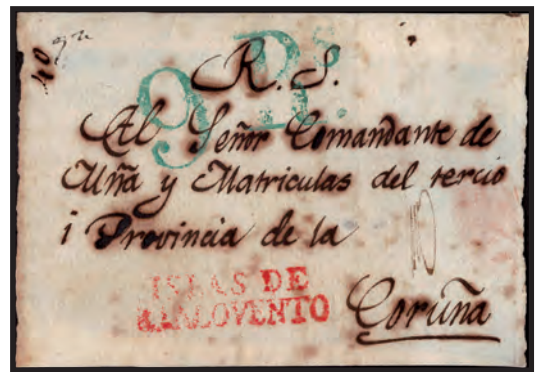 R. S.
9 Rs.
Al Señor Comandante de
Mñã y Matriculas del tercio
i Provincia de la
ISLAS DE
BARLOVENTO
Coruña